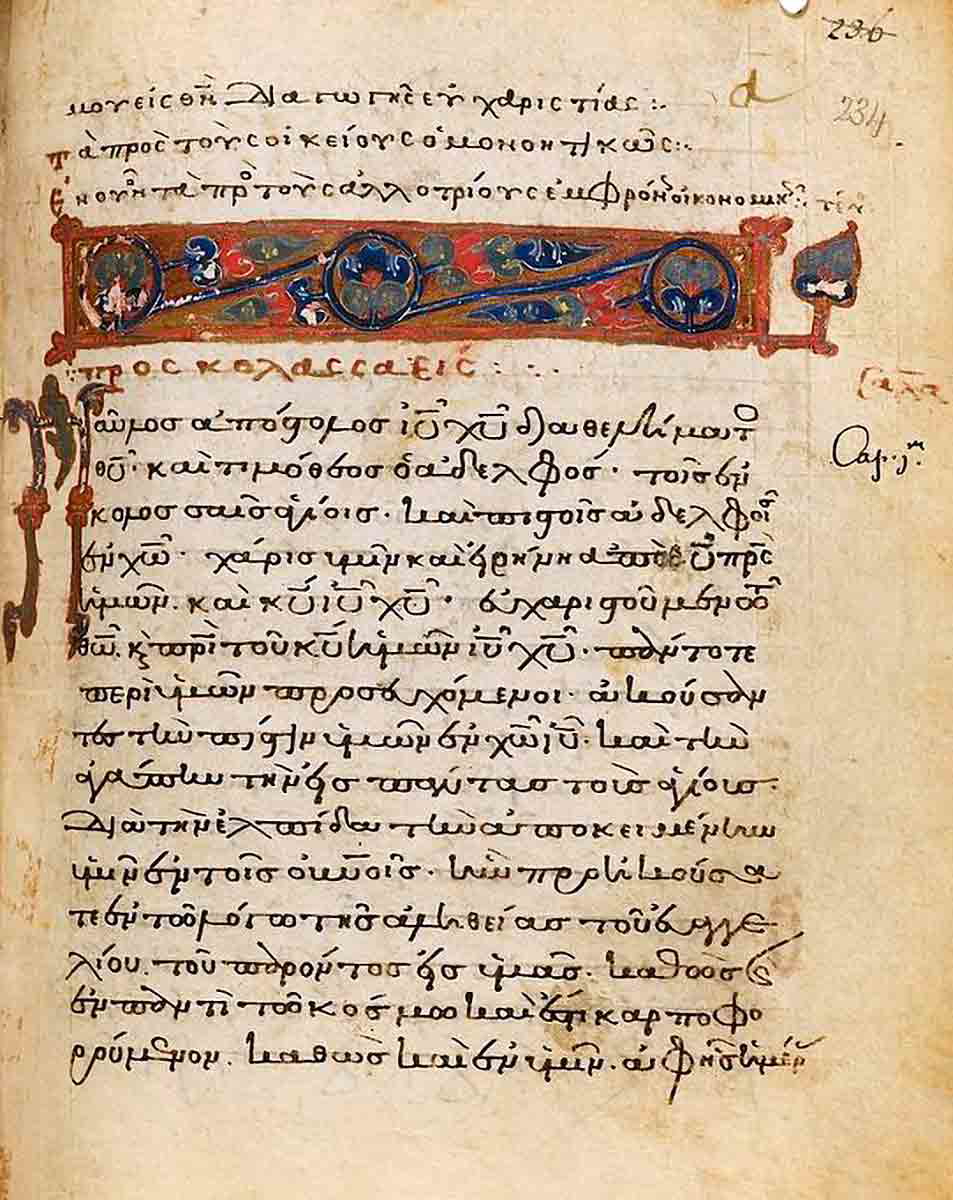 236
234
α
μου εἰς θν̅ Διαγωγῆς εὐχαριστίας :·
Τὰ πρὸς τοὺς οἰκείους ὁμονοητικῶς :·
τὰ πρὸ τοὺς ἀλλοτρίους
πρὸς κολασσαεῖς :
Παῦλος ἀπόστολος ιυ̅ χυ̅ διὰ θελήματο
θυ̅· καὶ τιμόθεος ὁ ἀδελφός· τοῖς ἐν
κολοσσαῖς ἁγίοις· καὶ πιστοῖς ἀδελφοῖ
Cap. 1m.
ἐν χω̅· χάρις ὑμῖν καὶ εἰρήνη ἀπὸ θυ̅ πρς̅
ἡμῶν. καὶ κυ̅ ιυ̅ χυ̅· εὐχαριστοῦμεν τῶ
θω̅. κ̀ πρι̅ τοῦ κυ̅ ἡμῶν ιυ̅ χυ̅· πάντοτε
περὶ ὑμῶν προσευχόμενοι· ἀκούσαν
τες τὴν πίστιν ὑμῶν ἐν χω̅ ιυ̅· καὶ τὴν
ἀγάπην τὴν εἰς πάντας τοὺς ἁγίους·
Διὰ τὴν ἐλπίδα τὴν ἀποκειμένην
ὑμῖν ἐν τοῖς οὐν̅οῖς· ἣν προηκούσα
τε ἐν τῶ λόγω τῆς ἀληθείας τοῦ εὐαγγε
λίου. τοῦ παρόντος εἰς ὑμᾶς. καθὼς κ̀
ἐν παντὶ τῶ κόσμω καὶ ἔστι καρποφο
ρούμενον. καθὼς καὶ ἐν ὑμῖν. ἀφ ἧς ἡμέρ